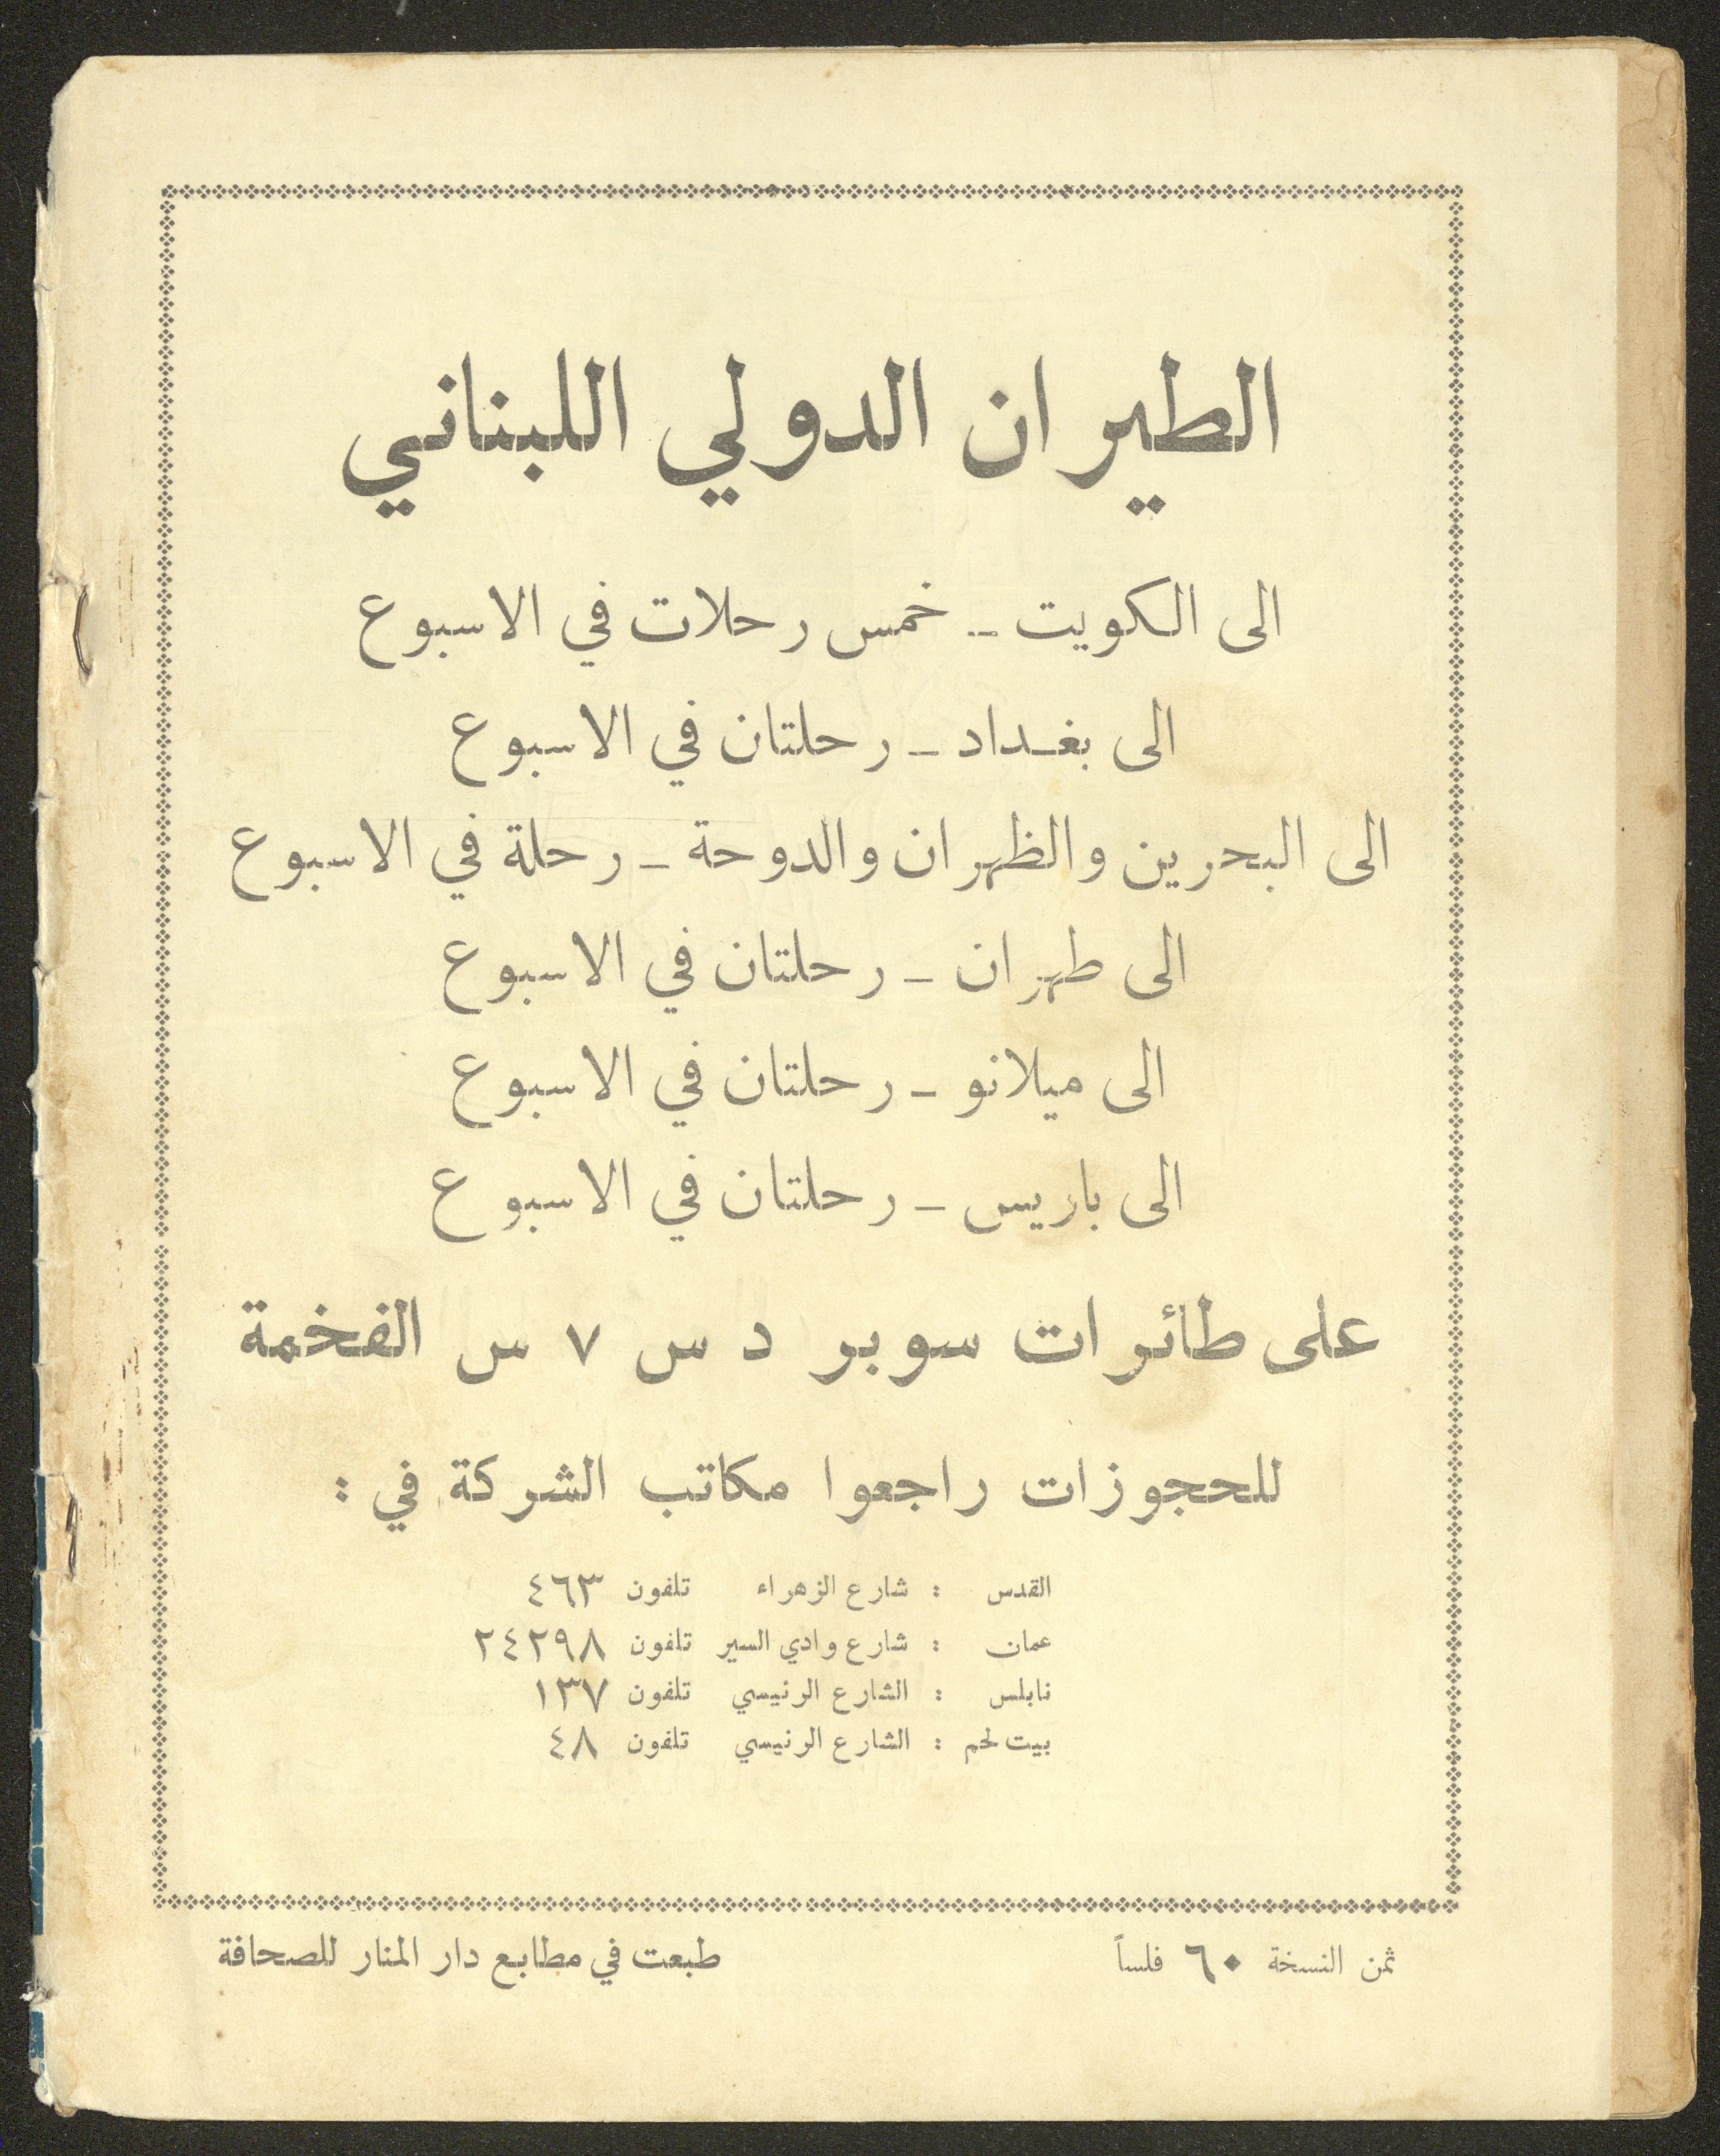 الطيران الدولي اللبناني
الى الكويت - خمس رحلات في الاسبوع
الى بغداد - رحلتان في الاسبوع
الى البحرين والظهران والدوحة - رحلة في الاسبوع
الى طهران - رحلتان في الاسبوع
الى ميلانو - رحلتان في الاسبوع
الى باريس - رحلتان في الاسبوع
على طائرات سوبر د س ٧ س الفخمة
للحجوزات راجعوا مكاتب الشركة في :
القدس : شارع الزهراء تلفون ٤٦٣
عمان : شارع وادي السير تلفون ٢٤٢٩٨
نابلس : الشارع الرئيسي تلفون ١٣٧
بيت لحم : الشارع الرئيسي تلفون ٤٨
ثمن النسخة ٦٠ فلساً
طبعت في مطابع دار المنار للصحافة